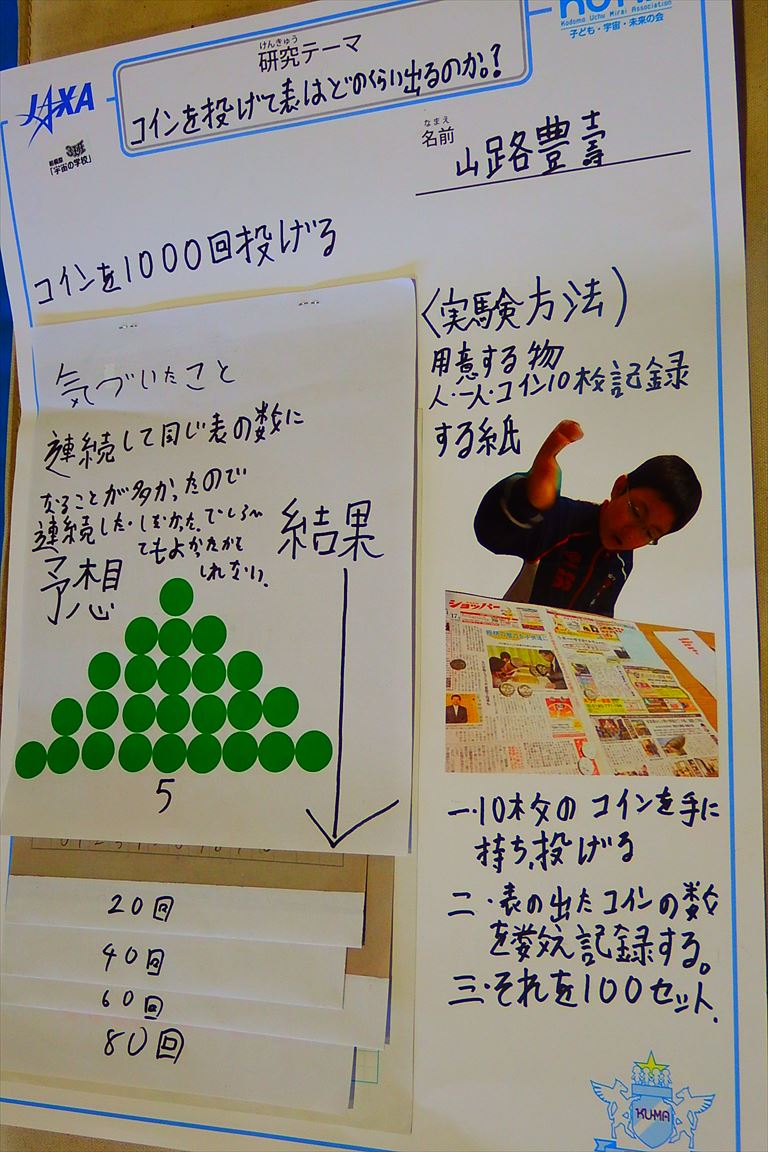 JAXA
「宇宙の学校」
けんきゅう
研究テーマ
コインを投げて表はどのくらい出るのか。?
Kodomo Uchu Mirai Association
子ども・宇宙・未来の会
なまえ
名前
山路豊壽
コインを1000回投げる
気づいたこと
連続して同じ表の数に
なることが多かったので
連続した
てもよかたかも
しれない。
予想
結果
5
20回
40回
60回
80回
〈実験方法〉
用意する物
人・一人・コイン10枚記録
する紙
ショッパー
一・10枚のコインを手に
持ち、投げる
二・表の出たコインの数
を数え記録する。
三・それを100セット.
KU-MA